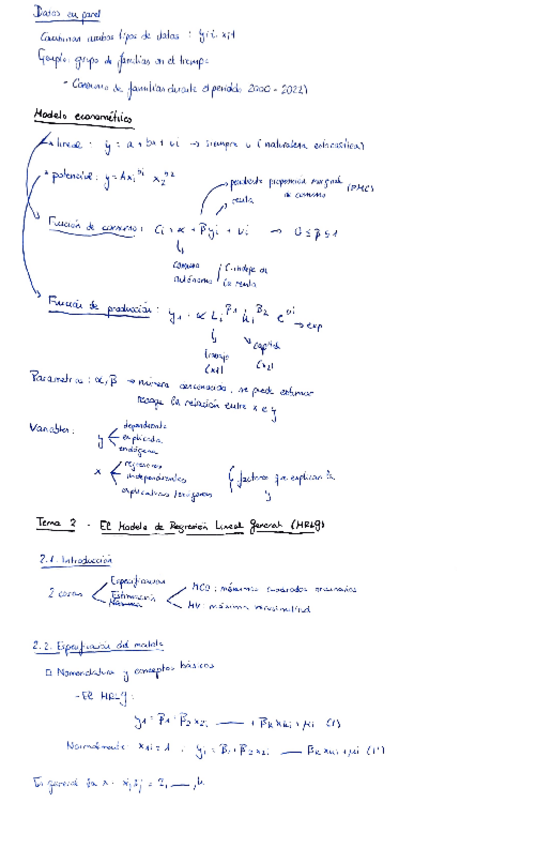 Datos en panel
Combinan ambos tipos de datos : yit, xit
Ejemplo: grupo de familias en el tiempo
- Consumo de familias durante el periodo 2000 - 2022)
Modelo econométrico
* lineal : y = a + bx + ui → siempre u (naturaleza estocástica)
* potencial: y = A x1 x2
pendiente propensión marginal de consumo (PMC)
renta
Función de consumo : Ci = α + β yi + ui → 0 ≤ β ≤ 1
consumo autónomo
la renta
Función de producción : y1 = α Li^β1 Ki^β2 e^ui → exp
trabajo
capital
(x1)
(x2)
Parametros : α, β → número desconocido, se puede estimar
recoge la relación entre x e y
Variables:
y
dependiente
explicada
endógena
x
regresores
independientes
explicativas / exógenas
factores que explican la
y
Tema 2 - El Modelo de Regresión Lineal General (MRLG)
2.1. Introducción
2 cosas
Especificación
Estimación
MCO : mínimos cuadrados ordinarios
MV : máxima verosimilitud
2.2. Especificación del modelo
□ Nomenclatura y conceptos básicos
- El MRLG:
y1 = β1 + β2 x2i —— + βk xki + μi (1)
Normalmente x1i = 1 , yi = β1 + β2 x2i —— βk xki + μi (1')
En general